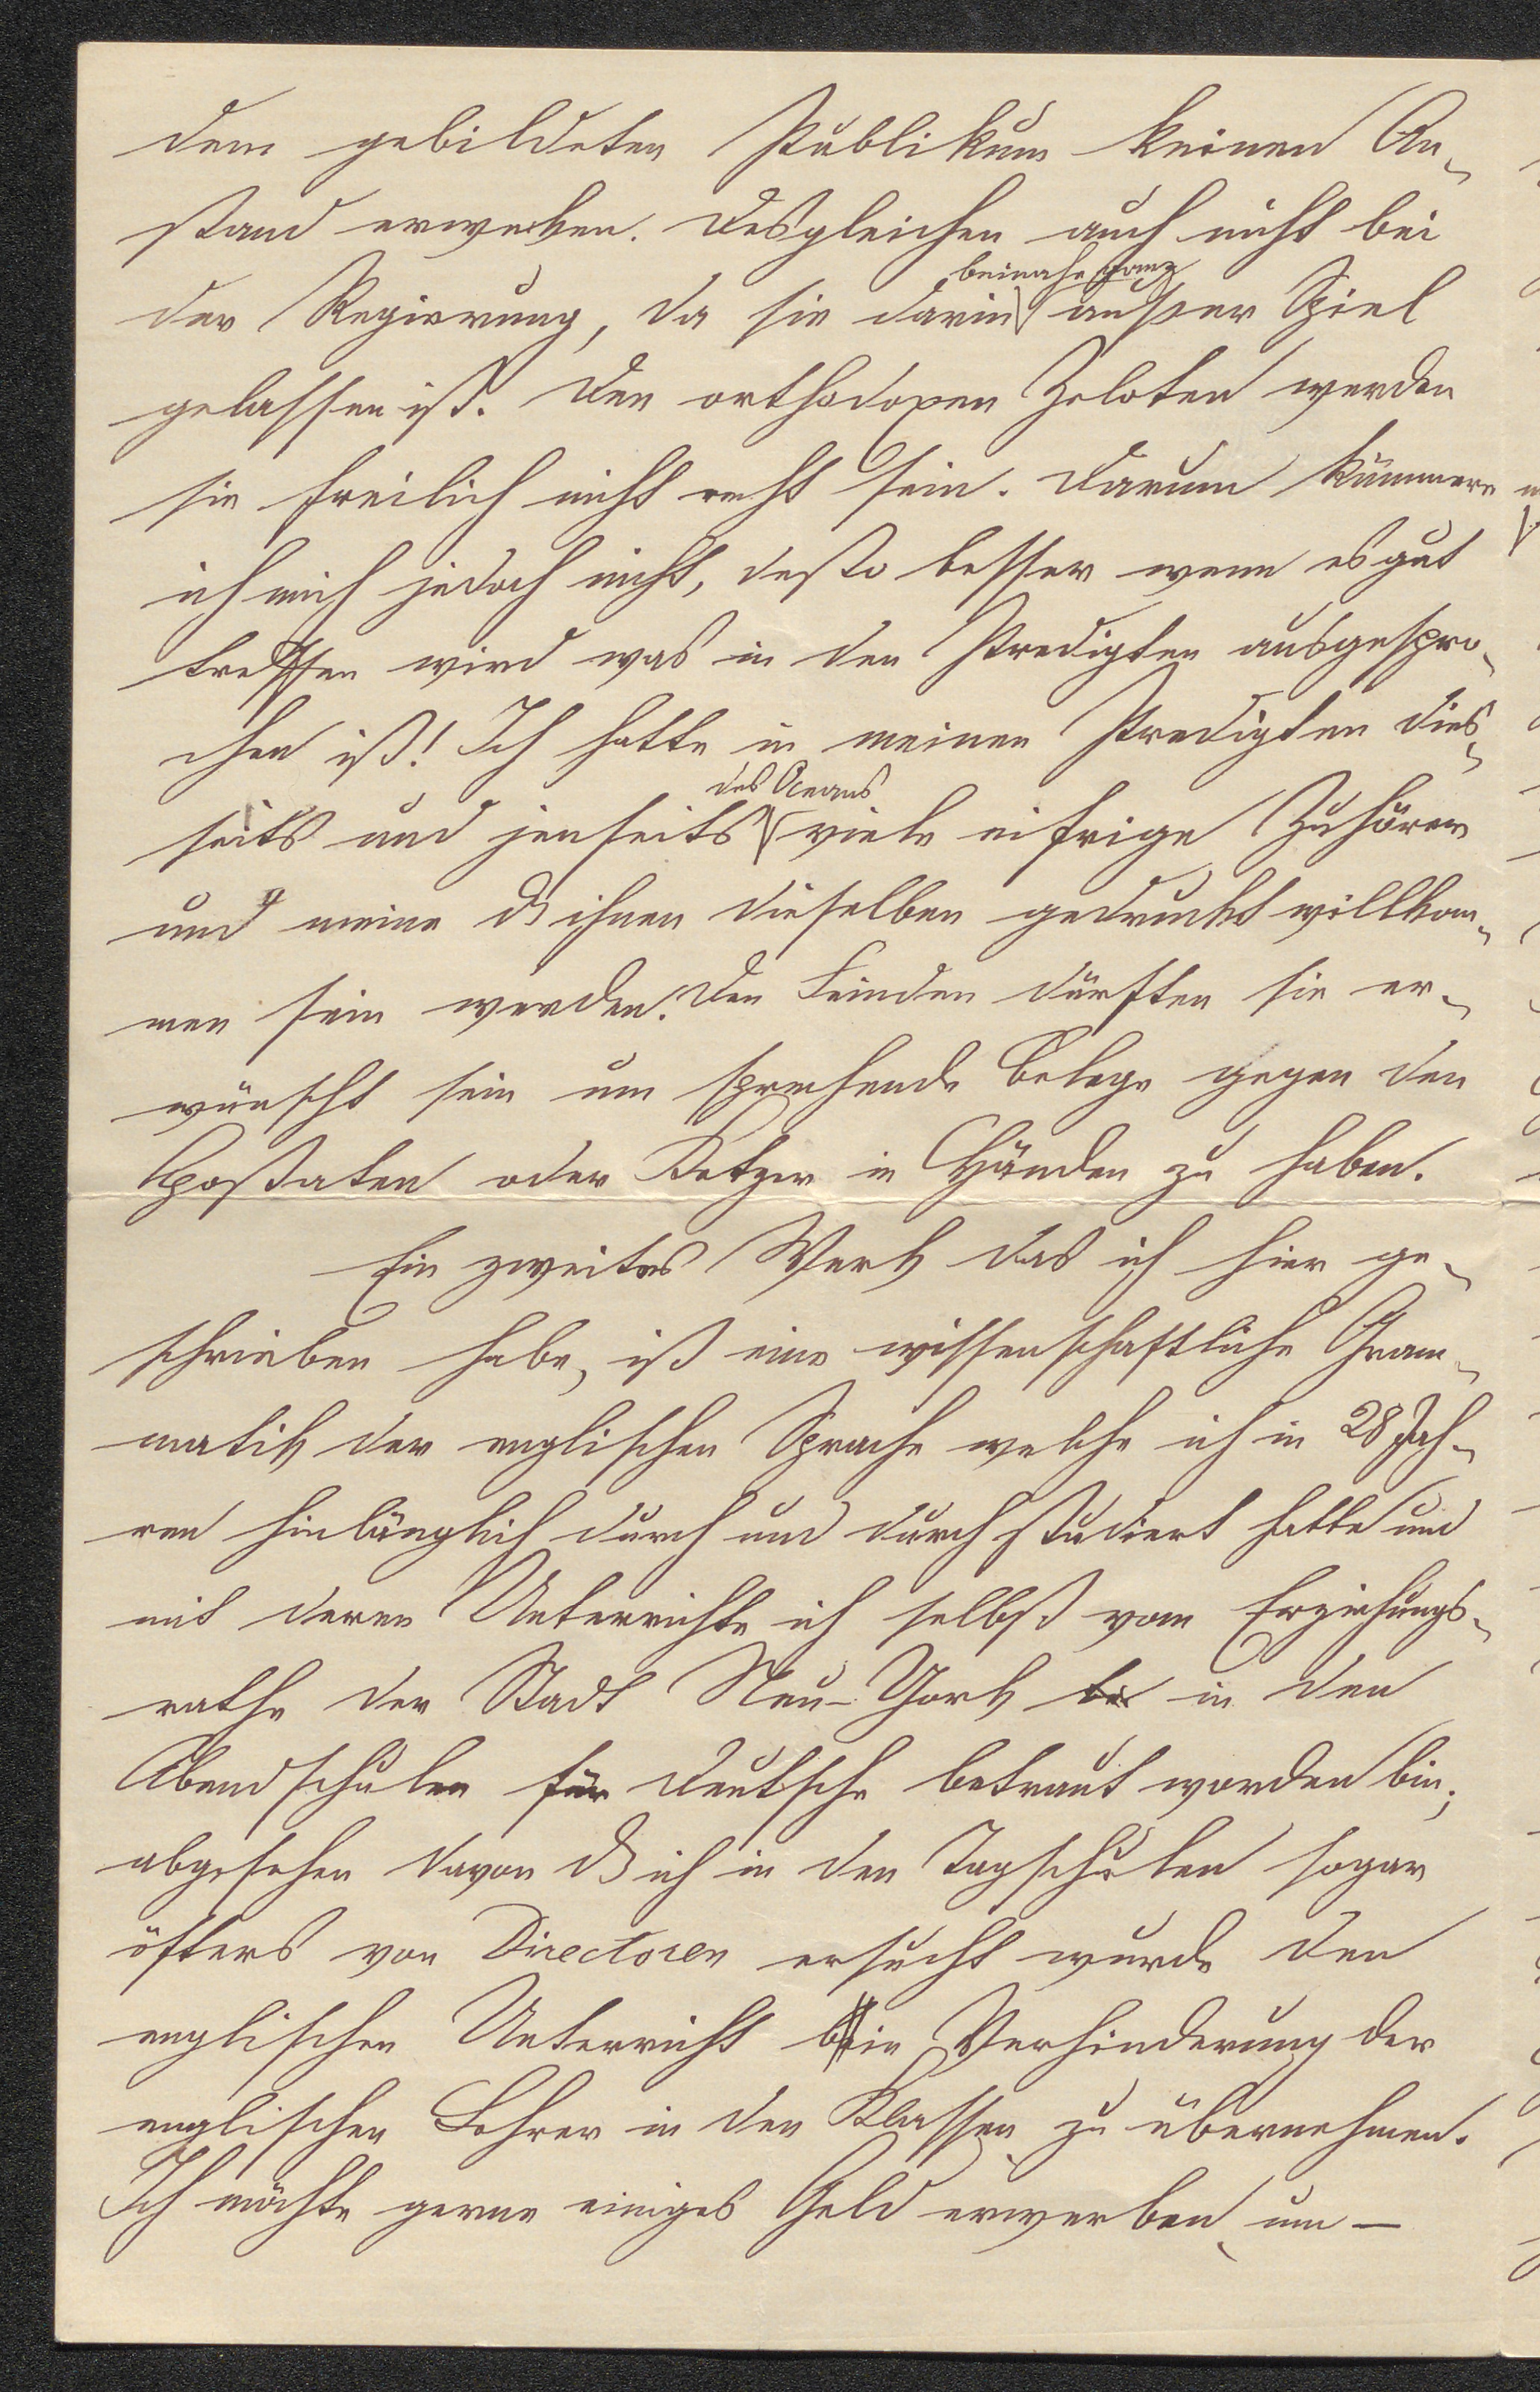 dem gebildeten Publikum keinen An-
stand erwecken. Desgleichen auch nicht bei
der Regierung, da sie darin beinahe ganz außer Spiel
gelassen ist. Den orthodoxen Zeloten werden
sie freilich nicht recht sein. Darum kümmere
ich mich jedoch nicht, desto besser wenn es gut
treffen wird was in den Predigten ausgespro-
chen ist! Ich hatte in meinen Predigten dies-
seits und jenseits des Oceans viele eifrige Zuhörer
und meine dß ihnen dieselben gedruckt willkom-
men sein werden. Den Feinden dürften sie er-
wünscht sein um sprechende Belege gegen den
Apostaten oder Ketzer in Händen zu haben.
Ein zweites Werk das ich hier ge-
schrieben habe, ist eine wissenschaftliche Gram-
matik der englischen Sprache welche ich in 28 Jah-
ren hinlänglich durch und durch studiert hatte und
mit deren Unterrichte ich selbst vom Erziehungs-
rathe der Stadt Neu-York in den
Abendschulen für Deutsche betraut worden bin;
abgesehen davon dß ich in den Tagschulen sogar
öfters von Directoren ersucht wurde den
englischen Unterricht bei Verhinderung der
englischen Lehrer in den Klassen zu übernehmen.
Ich möchte gerne einiges Geld erwerben, um —